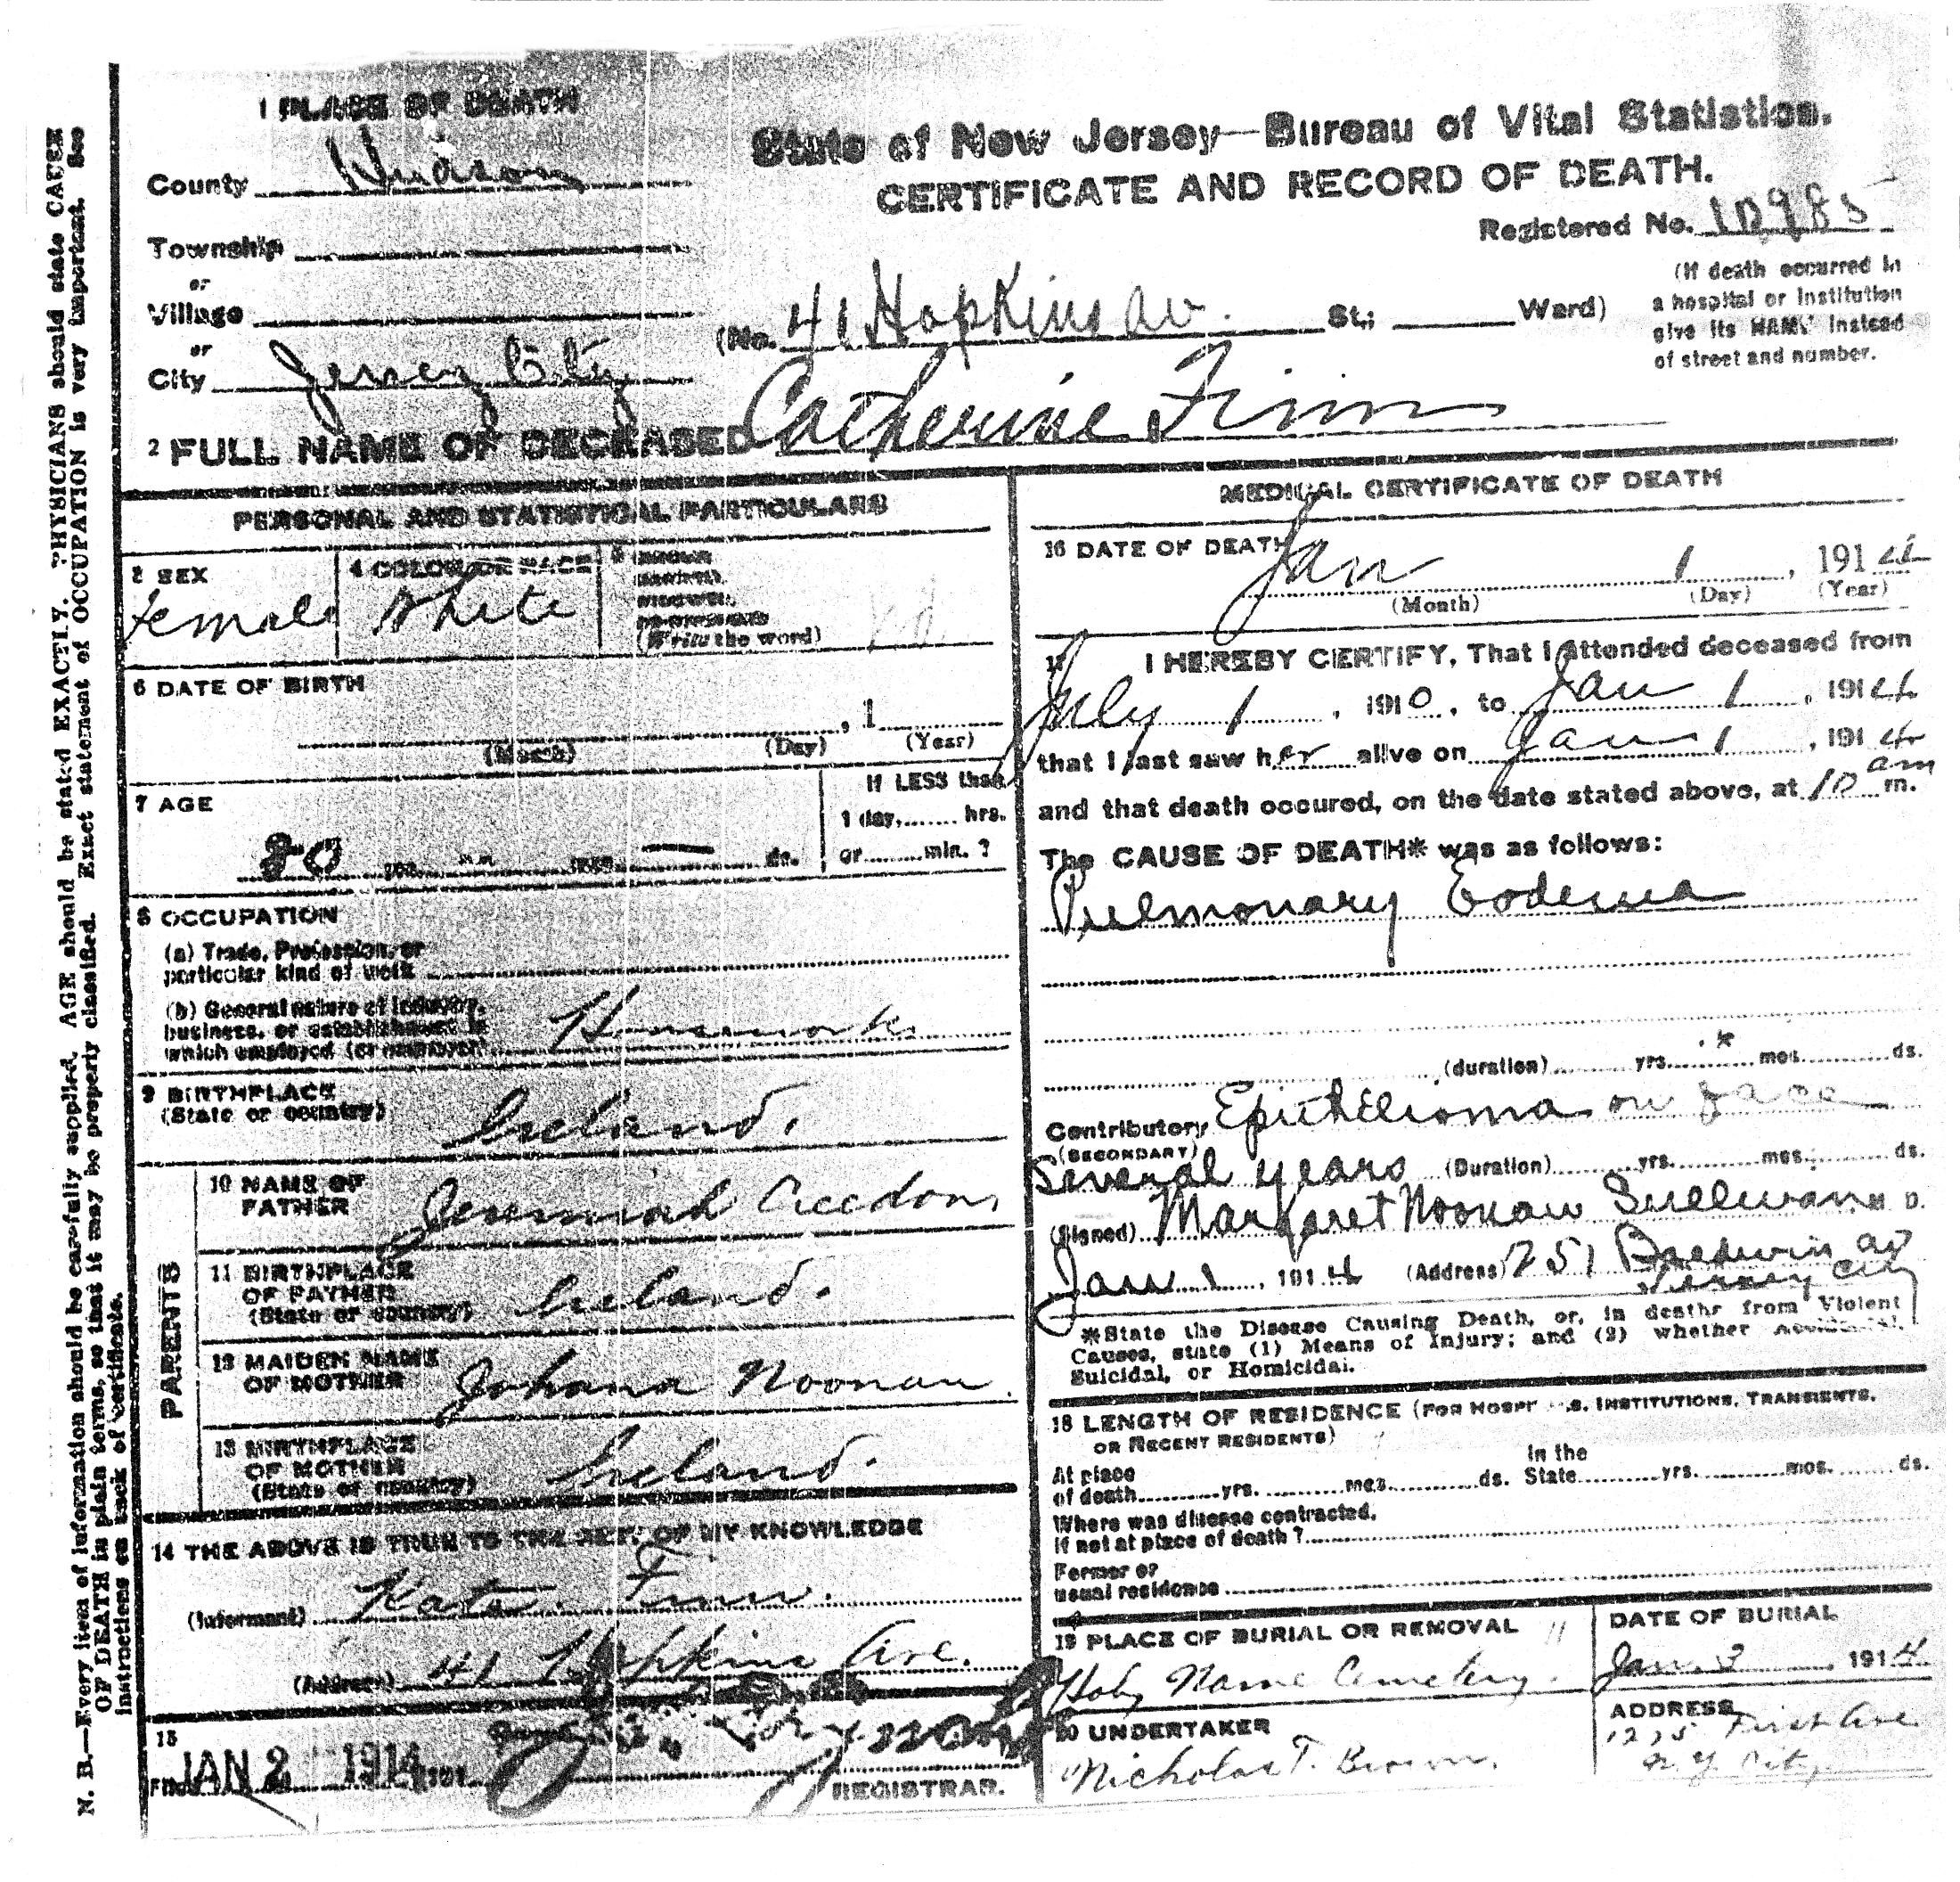 1 PLACE OF DEATH
State of New Jersey—Bureau of Vital Statistics.
CERTIFICATE AND RECORD OF DEATH.
County Hudson
Registered No. 10985
Township
or
Village
or
City Jersey City
(No. 41 Hopkins av. St.; Ward)
(If death occurred in
a hospital or institution
give its NAME instead
of street and number.
2 FULL NAME OF DECEASED Catherine Finn
PERSONAL AND STATISTICAL PARTICULARS
3 SEX
female
4 COLOR OR RACE
White
5 SINGLE
MARRIED,
WIDOWED,
OR DIVORCED
(Write the word)
6 DATE OF BIRTH
, 1
(Month) (Day) (Year)
7 AGE
80 yrs. mos. ds.
If LESS than
1 day, hrs.
or min. ?
8 OCCUPATION
(a) Trade, Profession, or
particular kind of work
(b) General nature of industry,
business, or establishment in
which employed (or employer)
Housework
9 BIRTHPLACE
(State or country)
Ireland.
PARENTS
10 NAME OF
FATHER
Jeremiah Creedon
11 BIRTHPLACE
OF FATHER
(State or country)
Ireland.
12 MAIDEN NAME
OF MOTHER
Johana Noonan
13 BIRTHPLACE
OF MOTHER
(State or country)
Ireland.
14 THE ABOVE IS TRUE TO THE BEST OF MY KNOWLEDGE
(Informant) Kate Finn.
(Address) 41 Hopkins Ave.
15
Filed JAN 2 1914
REGISTRAR.
MEDICAL CERTIFICATE OF DEATH
16 DATE OF DEATH
Jan 1, 1914
(Month) (Day) (Year)
17 I HEREBY CERTIFY, That I attended deceased from
July 1, 1910, to Jan 1, 1914
that I last saw her alive on Jan 1, 1914
and that death occured, on the date stated above, at 10 am m.
The CAUSE OF DEATH* was as follows:
Pulmonary Eodema
(duration) yrs. mos. ds.
Contributory Epithelioma on face
(SECONDARY)
Several years (Duration) yrs. mos. ds.
(Signed) Margaret Noonan Sullivan M. D.
Jan 1, 1914 (Address) 251 Baldwin av
Jersey City
*State the Disease Causing Death, or, in deaths from Violent
Causes, state (1) Means of Injury; and (2) whether Accidental,
Suicidal, or Homicidal.
18 LENGTH OF RESIDENCE (FOR HOSPITALS, INSTITUTIONS, TRANSIENTS,
OR RECENT RESIDENTS)
At place
of death yrs. mos. ds.
In the
State yrs. mos. ds.
Where was disease contracted,
if not at place of death ?
Former or
usual residence
19 PLACE OF BURIAL OR REMOVAL
Holy Name Cemetery.
DATE OF BURIAL
Jan. 3, 1914
20 UNDERTAKER
Nicholas T. Brown.
ADDRESS
1275 First Ave.
N.Y. City
N. B.—Every item of information should be carefully supplied. AGE should be stated EXACTLY. PHYSICIANS should state CAUSE
OF DEATH in plain terms, so that it may be properly classified. Exact statement of OCCUPATION is very important. See
instructions on back of certificate.